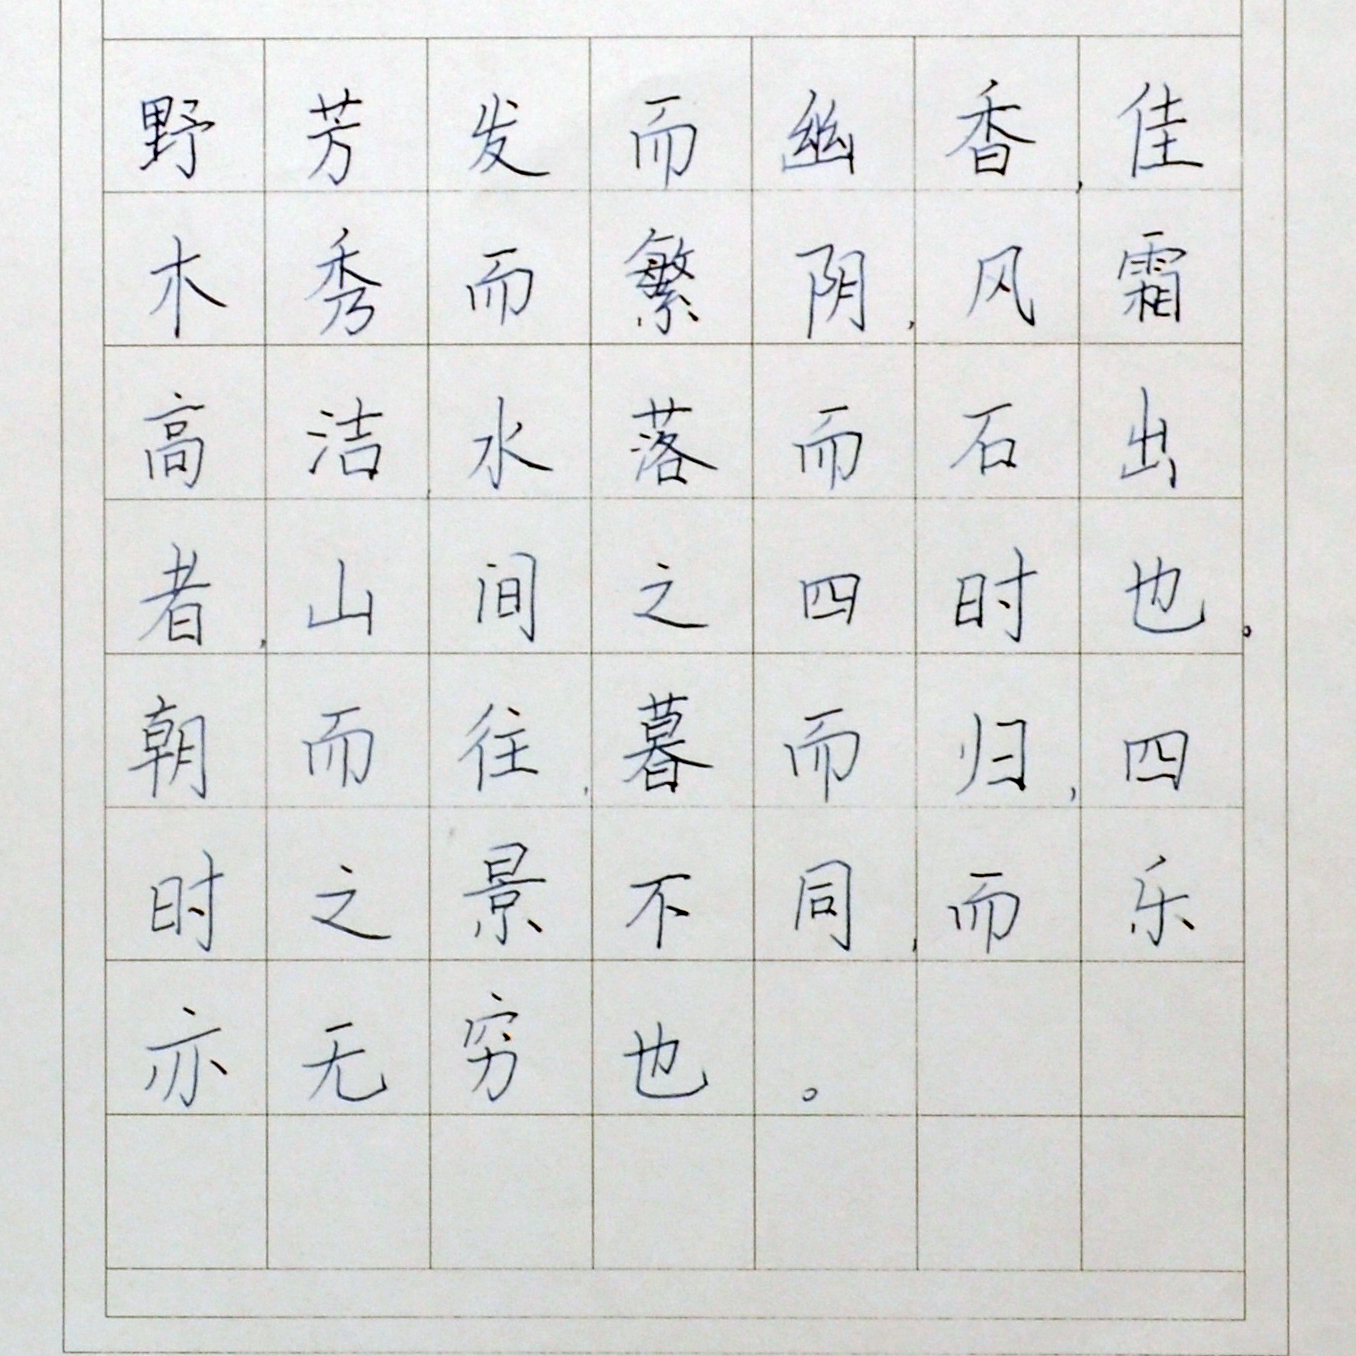 野芳发而幽香,佳
木秀而繁阴,风霜
高洁水落而石出
者,山间之四时也。
朝而往,暮而归,四
时之景不同,而乐
亦无穷也。